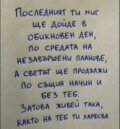 Последният ти миг
ще дойде в
обикновен ден,
по средата на
незавършени планове,
а светът ще продължи
по същия начин и
без теб.
Затова живей така,
както на теб ти харесва